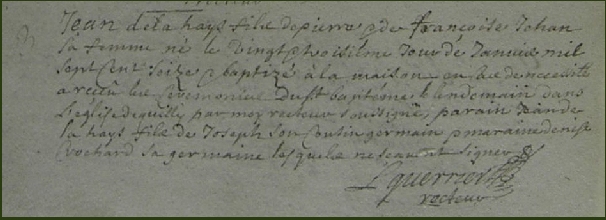 Jean de la hays fils de pierre & de francoise Jehan
sa femme né le vingt troisième Jour de Janvier mil
sept Cent seize & baptizé à la maison en cas de necessité
a recu les Ceremonies du st baptéme le lendemain dans
l'église par moy recteur soussigné, parain Jean de
la hays fils de Joseph son Coutin germain & maraine denise
vochard sa germaine lesquels ne scavent signer
Lguerner
recteur